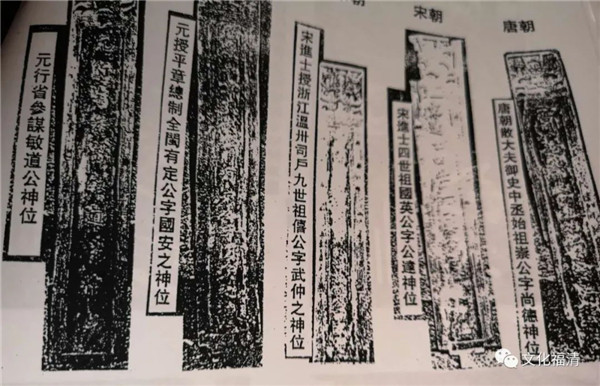 唐朝
唐朝散大夫御史中丞始祖崇公字尚德神位
宋朝
宋進士四世祖國英公字公達神位
朝
宋進士授浙江溫卅司戶九世祖僖公字武仲之神位
元授平章總制全閩有定公字國安之神位
元行省參謀敏道公神位
文化福清